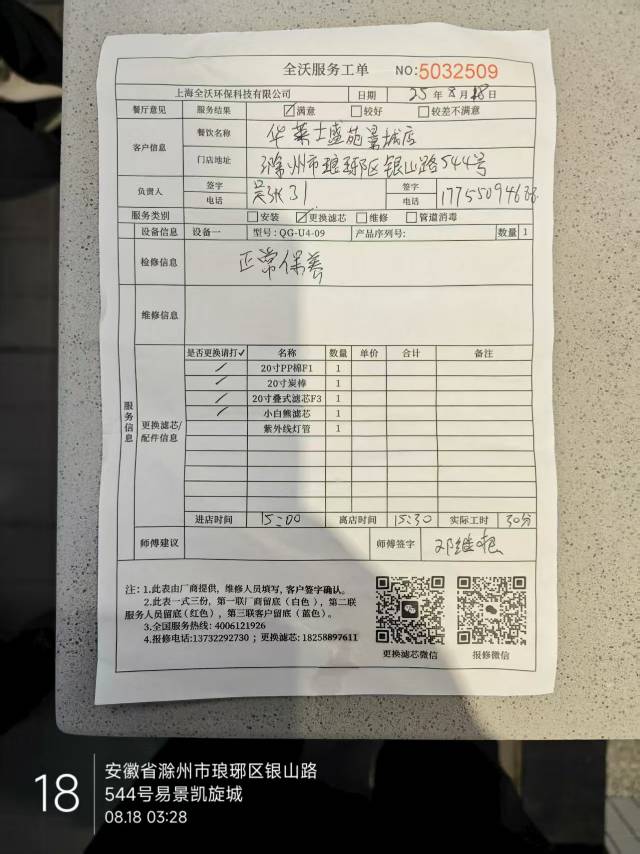 全沃服务工单 NO:5032509
上海全沃环保科技有限公司 日期 25年8月18日
餐厅意见 服务结果 ☑满意 □较好 □较差不满意
客户信息 餐饮名称 华莱士盛苑景城店
门店地址 滁州市琅琊区银山路544号
负责人 签字 电话 签字 电话
服务类别 □安装 ☑更换滤芯 □维修 □管道消毒
设备信息 设备一 型号:QG-U4-09 产品序列号: 数量 1
检修信息 正常保养
维修信息
服务信息
更换滤芯/配件信息
是否更换请打✓ 名称 数量 单价 合计 备注
✓ 20寸PP棉F1 1
✓ 20寸炭棒 1
✓ 20寸叠式滤芯F3 1
✓ 小白熊滤芯 1
紫外线灯管 1
进店时间 15:00 离店时间 15:30 实际工时 30分
师傅建议 师傅签字 邓继
注:1.此表由厂商提供,维修人员填写,客户签字确认。
2.此表一式三份,第一联厂商留底(白色),第二联
服务人员留底(红色),第三联客户留底(蓝色)。
3.全国服务热线:4006121926
4.报修电话:13732292730;更换滤芯:18258897611
更换滤芯微信 报修微信
18
安徽省滁州市琅琊区银山路
544号易景凯旋城
08.18 03:28